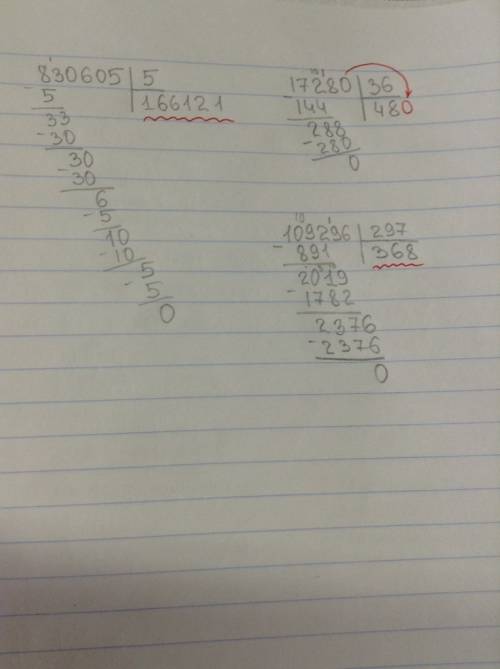 830605 | 5
- 5 | 166121
33
- 30
30
- 30
6
- 5
10
- 10
5
- 5
0
17280 | 36
- 144 | 480
288
- 280
0
109296 | 297
- 891 | 368
2019
- 1782
2376
- 2376
0